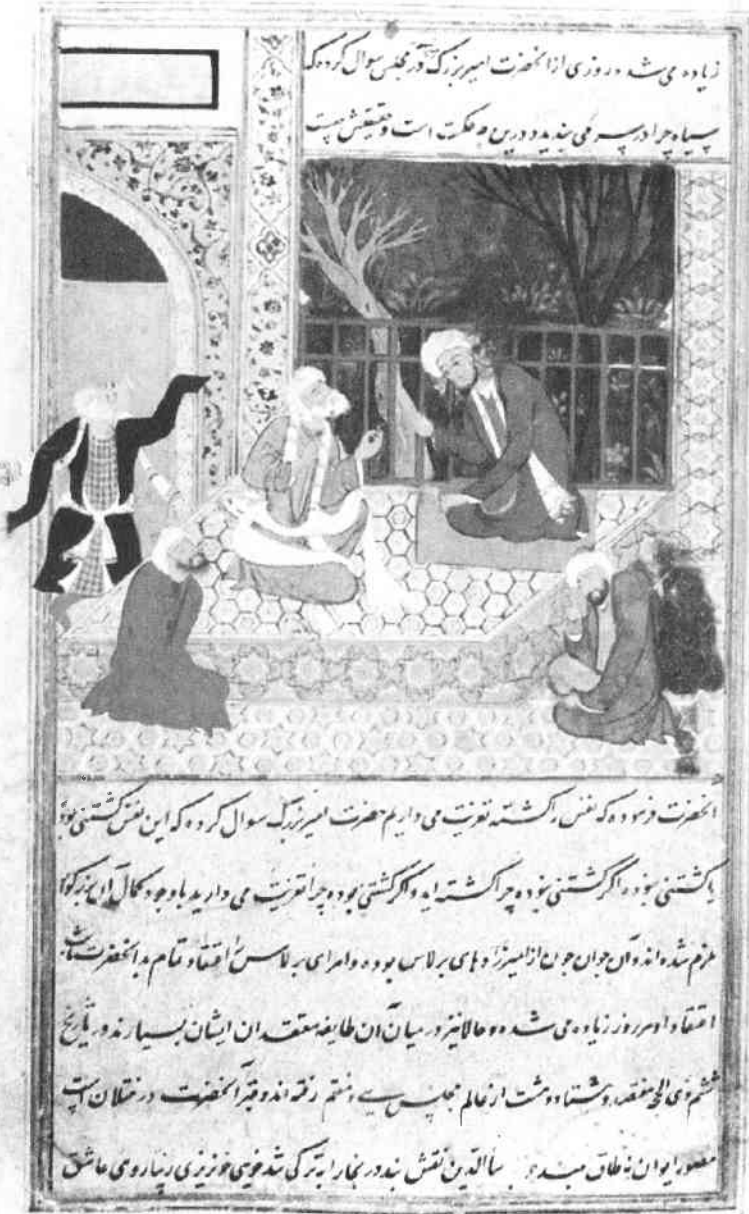 زیاده می شد در روزی از آنحضرت امیر بزرگ در مجلس سوال کرده که
سیاه چرا در سر می بندید و درین چه حکمت است و حقیقتش چیست
آنحضرت فرموده که نفس را کشته تعزیت می داریم حضرت امیر بزرگ سوال کرده که این نفس کشتنی بود
یا کشتنی نبوده اگر کشتنی نبوده چرا کشته اید و اگر کشتنی بوده چرا تعزیت می دارید با وجود کمال آن بزرگوار
ملزم شده اند و آن جوان از امیرزاده های برلاس بوده و امرای برلاس را اعتقاد تمام به آنحضرت
اعتقاد او هر روز زیاده می شده و حالا نیز در میان آن طایفه معتقدان ایشان بسیارند در تاریخ
ششم ذی الحج هفتصد و هشتاد و هشت از عالم رفته اند و قبر آنحضرت در ختلان است
ایوان نه طاق الدین نقش بند در بخارا به ترکی شد روی عاشق